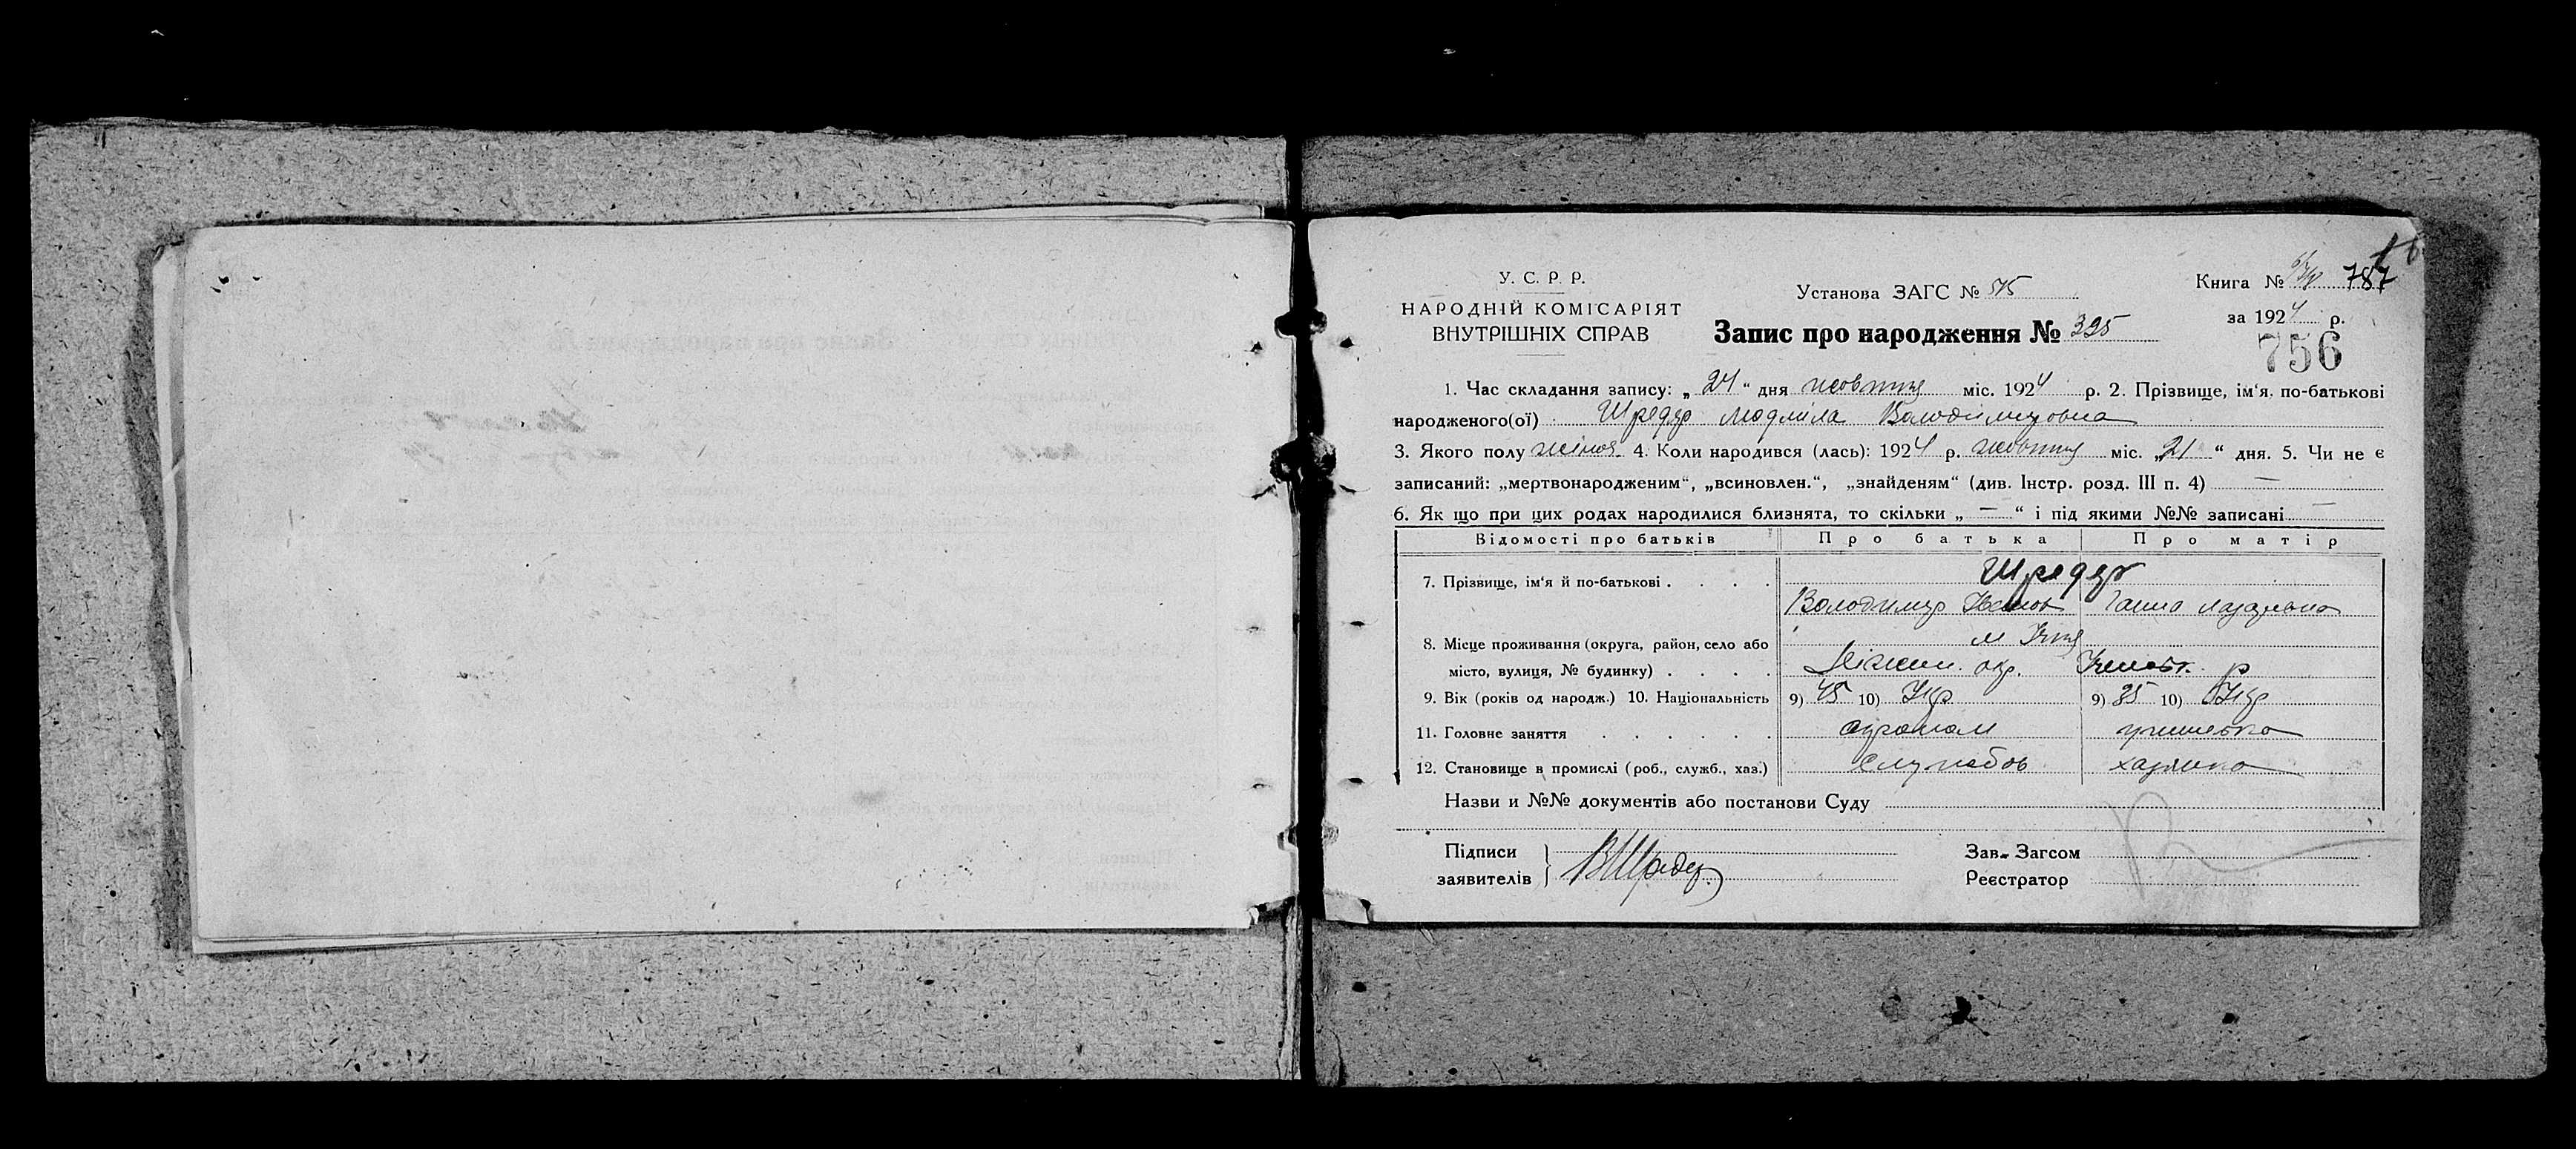 У. С. Р. Р.
НАРОДНІЙ КОМІСАРІЯТ
ВНУТРІШНІХ СПРАВ
Установа ЗАГС №
Запис про народження № 395
Книга № 787
за 1924 р.
756
1. Час складання запису: „ 24 “ дня жовтня міс. 1924 р. 2. Прізвище, ім‘я, по-батькові
народженого(ої) Шредер Людміла Володимировна
3. Якого полу жіноч. 4. Коли народився (лась): 1924 р. жовтня міс. „ 21 “ дня. 5. Чи не є
записаний: „мертвонародженим“, „всиновлен.“, „знайденям“ (див. Інстр. розд. III п. 4) —
6. Як що при цих родах народилися близнята, то скільки „ — “ і під якими №№ записані —
Відомості про батьків Про батька Про матір
7. Прізвище, ім‘я й по-батькові . . . . Шредер
Володимир Іванов Ганна Лазарьвна
8. Місце проживання (округа, район, село або м Ічня
місто, вулиця, № будинку) . . . . Ніжин. окр. Ічнянськ. р
9. Вік (років од народж.) 10. Національність 9) 45 10) Укр 9) 35 10) Укр
11. Головне заняття . . . . . . агроном
12. Становище в промислі (роб., служб., хаз.) службов хазяйка
Назви и №№ документів або постанови Суду
Підписи
заявителів } ВШредер
Зав. Загсом
Реєстратор